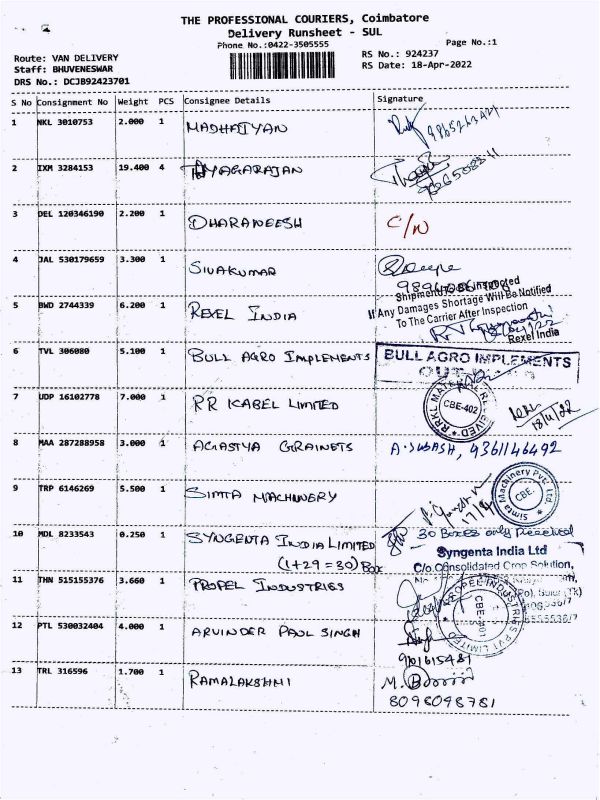 THE PROFESSIONAL COURIERS, Coimbatore
Delivery Runsheet - SUL
Phone No.:0422-3505555
Page No.:1
Route: VAN DELIVERY
Staff: BHUVENESWAR
DRS No.: DCJB92423701
RS No.: 924237
RS Date: 18-Apr-2022
S No Consignment No Weight PCS Consignee Details Signature
1 NKL 3010753 2.000 1 MADHAIYAN
2 IXM 3284153 19.400 4 THYAGARAJAN
3 DEL 120346190 2.200 1 DHARANEESH C/N
4 JAL 530179659 3.300 1 SIVAKUMAR
Shipment To Be Inspected
If Any Damages Shortage Will Be Notified
To The Carrier After Inspection
5 BWD 2744339 6.200 1 REXEL INDIA
Rexel India
6 TVL 306080 5.100 1 BULL AGRO IMPLEMENTS BULL AGRO IMPLEMENTS
7 UDP 16102778 7.000 1 RR KABEL LIMITED CBE-402 18/4/22
8 MAA 287288958 3.000 1 AGASTYA GRAINETS A.SUBASH, 9361146492
9 TRP 6146269 5.500 1 SIMTA MACHINERY Simta Machinery Pvt. Ltd CBE-
10 MDL 8233543 0.250 1 SYNGENTA INDIA LIMITED 30 Boxes only Received
(1+29=30) Box
Syngenta India Ltd
C/o.Consolidated Crop Solution,
11 THN 515155376 3.660 1 PROPEL INDUSTRIES PROPEL INDUSTRIES PVT LIMITED CBE-401
12 PTL 530032404 4.000 1 ARVINDER PAUL SINGH
13 TRL 316596 1.700 1 RAMALAKSHMI M.
8098098781